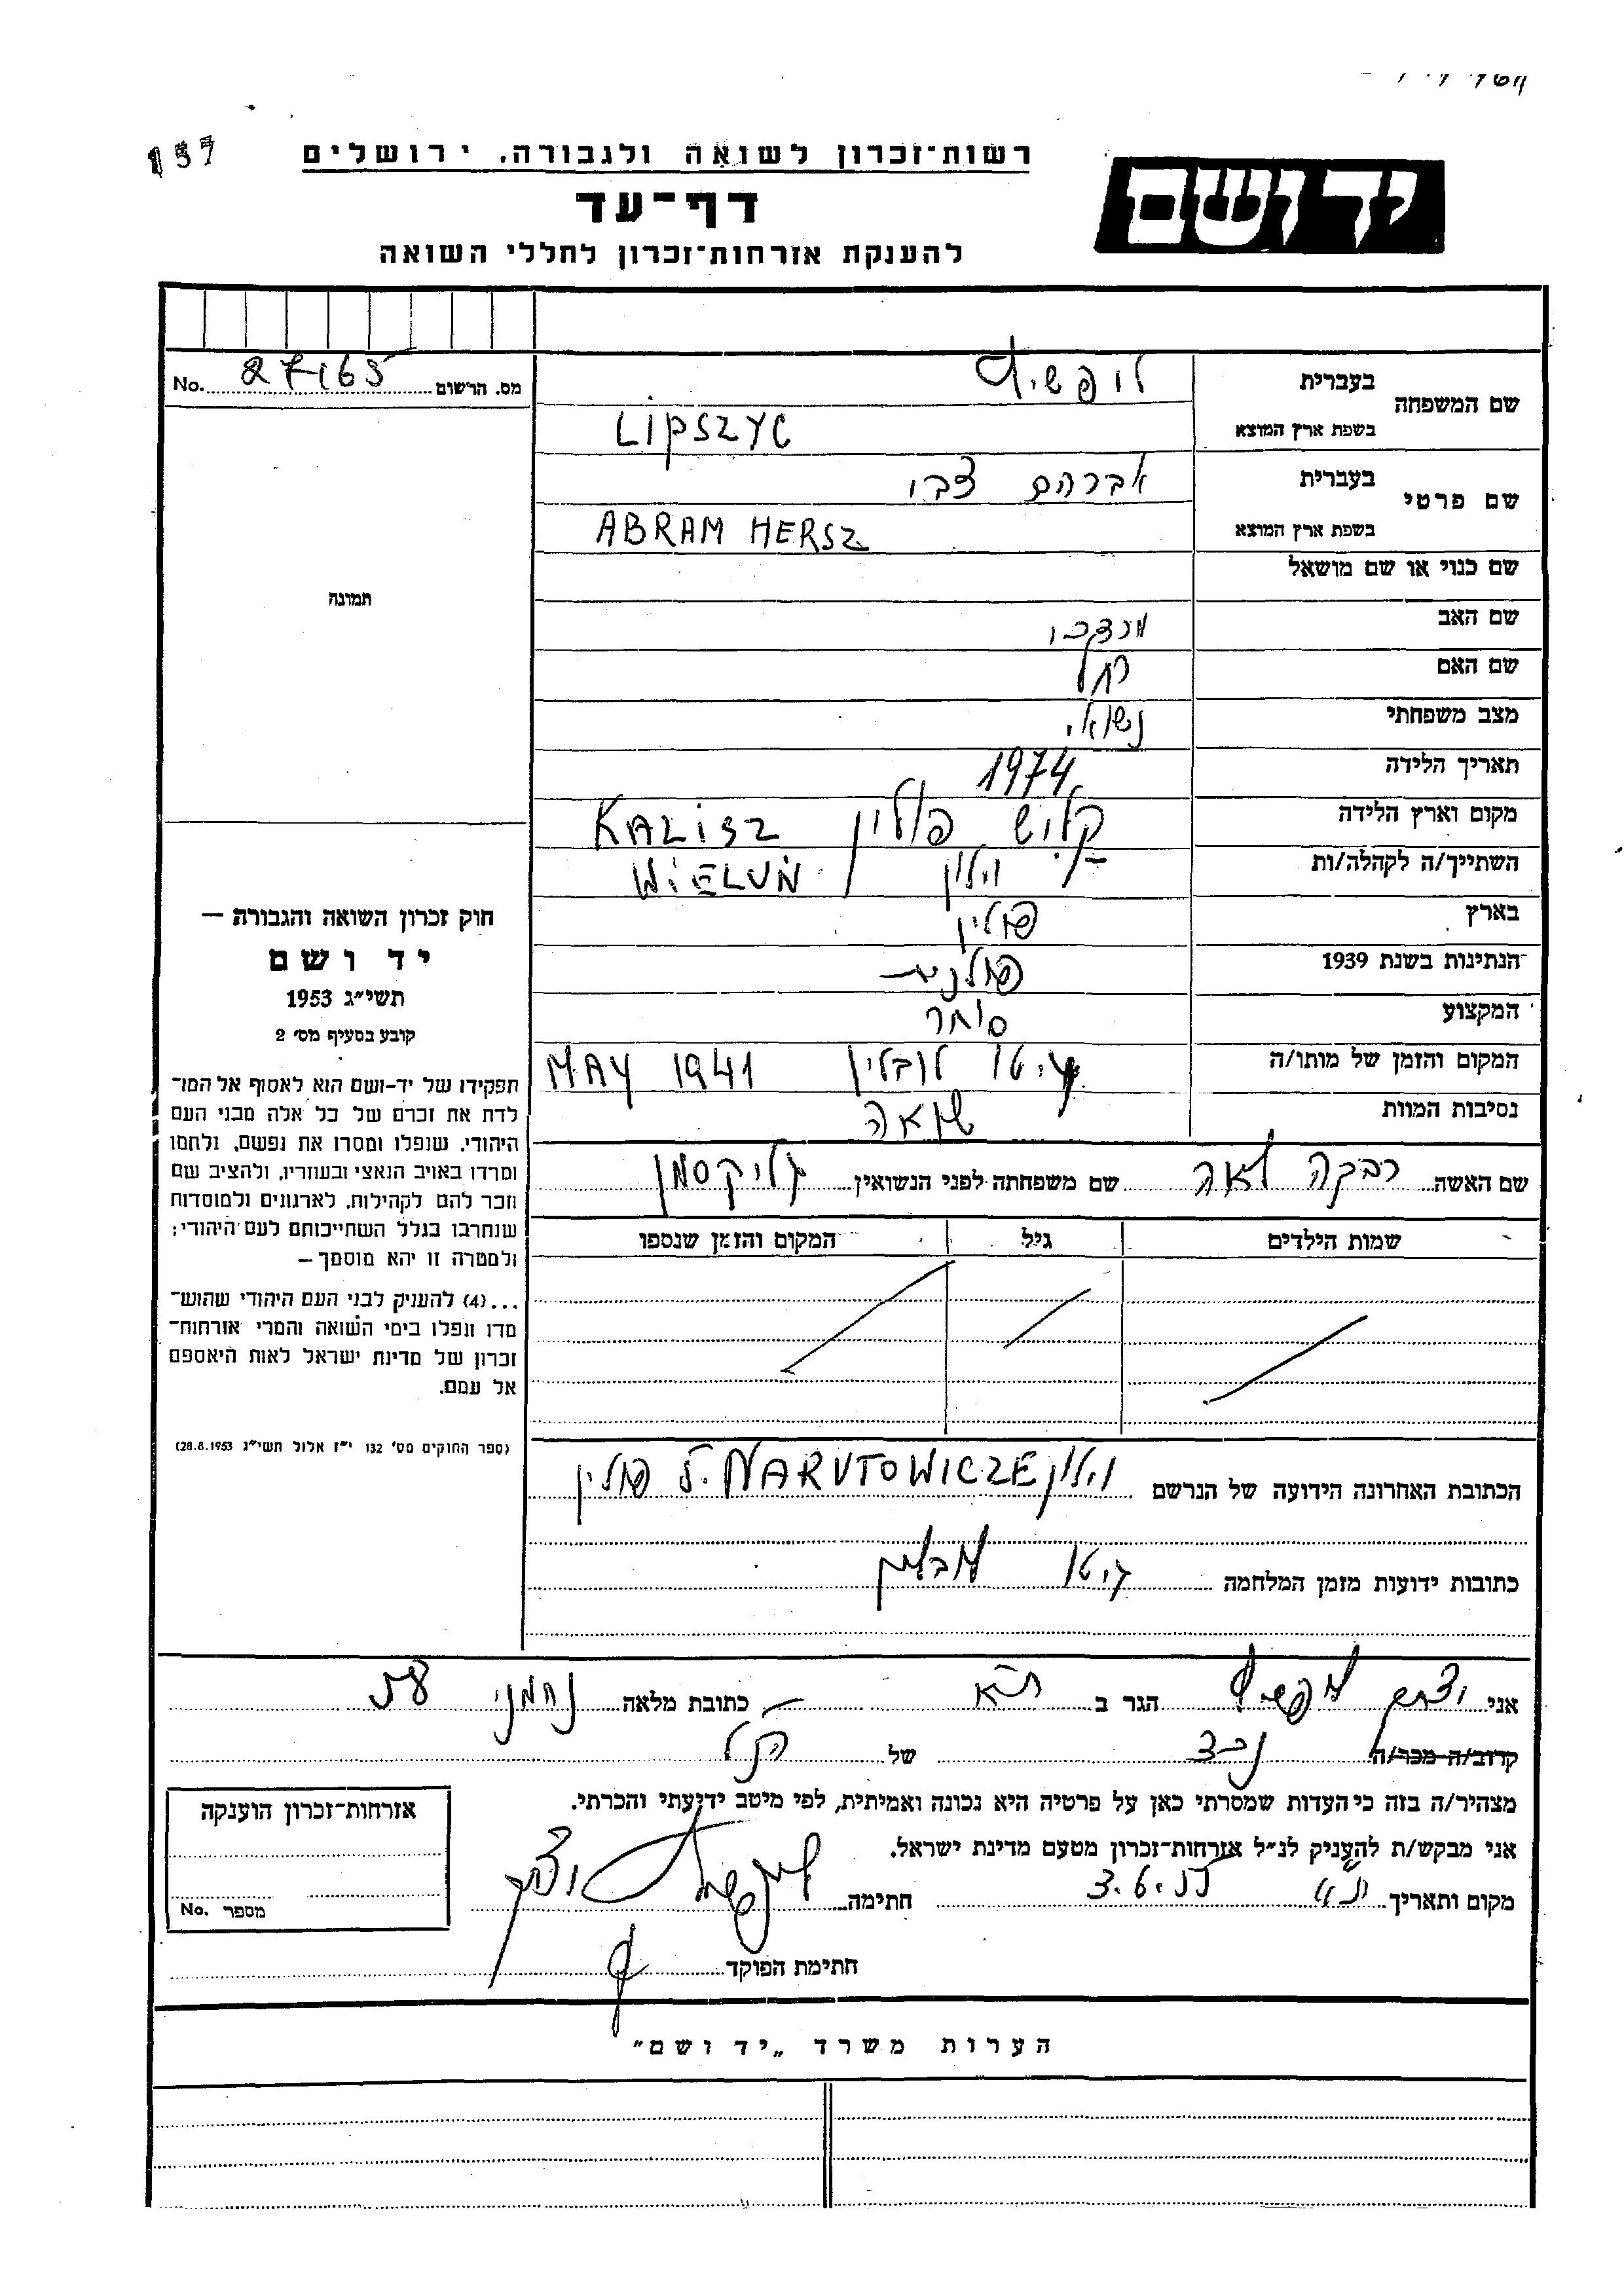 157
רשות־זכרון לשואה ולגבורה, ירושלים
יד ושם
דף־עד
להענקת אזרחות־זכרון לחללי השואה
מס. הרשום 27165 No.
שם המשפחה
בעברית ליפשיץ
בשפת ארץ המוצא LIPSZYC
שם פרטי
בעברית אברהם צבי
בשפת ארץ המוצא ABRAM HERSZ
שם כנוי או שם מושאל
שם האב מרדכי
שם האם רחל
מצב משפחתי נשואי
תאריך הלידה 1974
מקום וארץ הלידה קליש פולין KALISZ
השתייך/ה לקהלה/ות וילון WIELUŃ
בארץ פולין
הנתינות בשנת 1939 פולנית
המקצוע סוחר
המקום והזמן של מותו/ה גיטו לובלין MAY 1941
נסיבות המוות שואה
שם האשה רבקה לאה שם משפחתה לפני הנשואין גליקסמן
שמות הילדים גיל המקום והזמן שנספו
הכתובת האחרונה הידועה של הנרשם וילון NARUTOWICZE 5. פולין
כתובות ידועות מזמן המלחמה גיטו לובלין
תמונה
חוק זכרון השואה והגבורה —
יד ושם
תשי״ג 1953
קובע בסעיף מס׳ 2
תפקידו של יד-ושם הוא לאסוף אל המו־
לדת את זכרם של כל אלה מבני העם
היהודי, שנפלו ומסרו את נפשם, נלחמו
ומרדו באויב הנאצי ובעוזריו, ולהציב שם
וזכר להם לקהילות, לארגונים ולמוסדות
שנחרבו בגלל השתייכותם לעם היהודי;
ולמטרה זו יהא מוסמך —
...(4) להעניק לבני העם היהודי שהוש־
מדו ונפלו בימי השואה והמרי אזרחות־
זכרון של מדינת ישראל לאות היאספם
אל עמם.
(ספר החוקים מס׳ 132 י״ז אלול תשי״ג 28.8.1953)
אני יצחק ליפשיץ הגר ב ת״א כתובת מלאה נחמני
קרוב/ה מכר/ה נכד של הנ״ל
מצהיר/ה בזה כי העדות שמסרתי כאן על פרטיה היא נכונה ואמיתית, לפי מיטב ידיעתי והכרתי.
אני מבקש/ת להעניק לנ״ל אזרחות־זכרון מטעם מדינת ישראל.
מקום ותאריך ת״א חתימה ליפשיץ יצחק
חתימת הפוקד
אזרחות־זכרון הוענקה
מספר No.
הערות משרד „יד ושם"